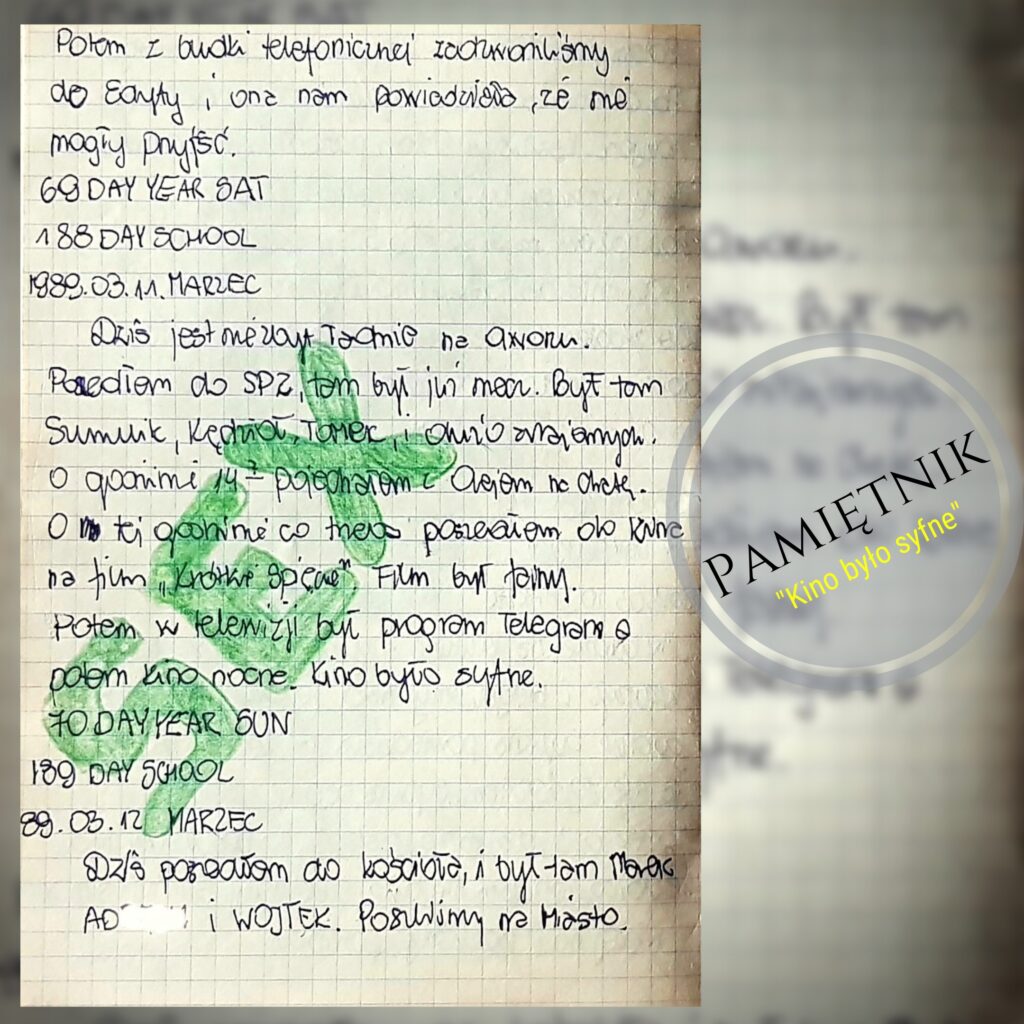 Potem z budki telefonicznej zadzwoniliśmy
do Edyty i ona nam powiedziała, że nie
mogły przyjść.
69 DAY YEAR SAT
188 DAY SCHOOL
1989.03.11. MARZEC
Dziś jest niezbyt ładnie na dworu.
Poszedłem do SP2, tam był już mecz. Był tam
Sumulik, Tomek, i dużo znajomych.
O godzinie 14 pojechałem z Olejem na chatę.
O tej godzinie co poszedłem do kina
na film „Krótkie spięcie" Film był fajny.
Potem w telewizji był program Telegram a
potem kino nocne. Kino było syfne.
70 DAY YEAR SUN
189 DAY SCHOOL
89.03.12 MARZEC
Dziś poszedłem do kościoła, i był tam Marek
AD i WOJTEK. Poszliśmy na Miasto.
SEX
PAMIĘTNIK
"Kino było syfne"